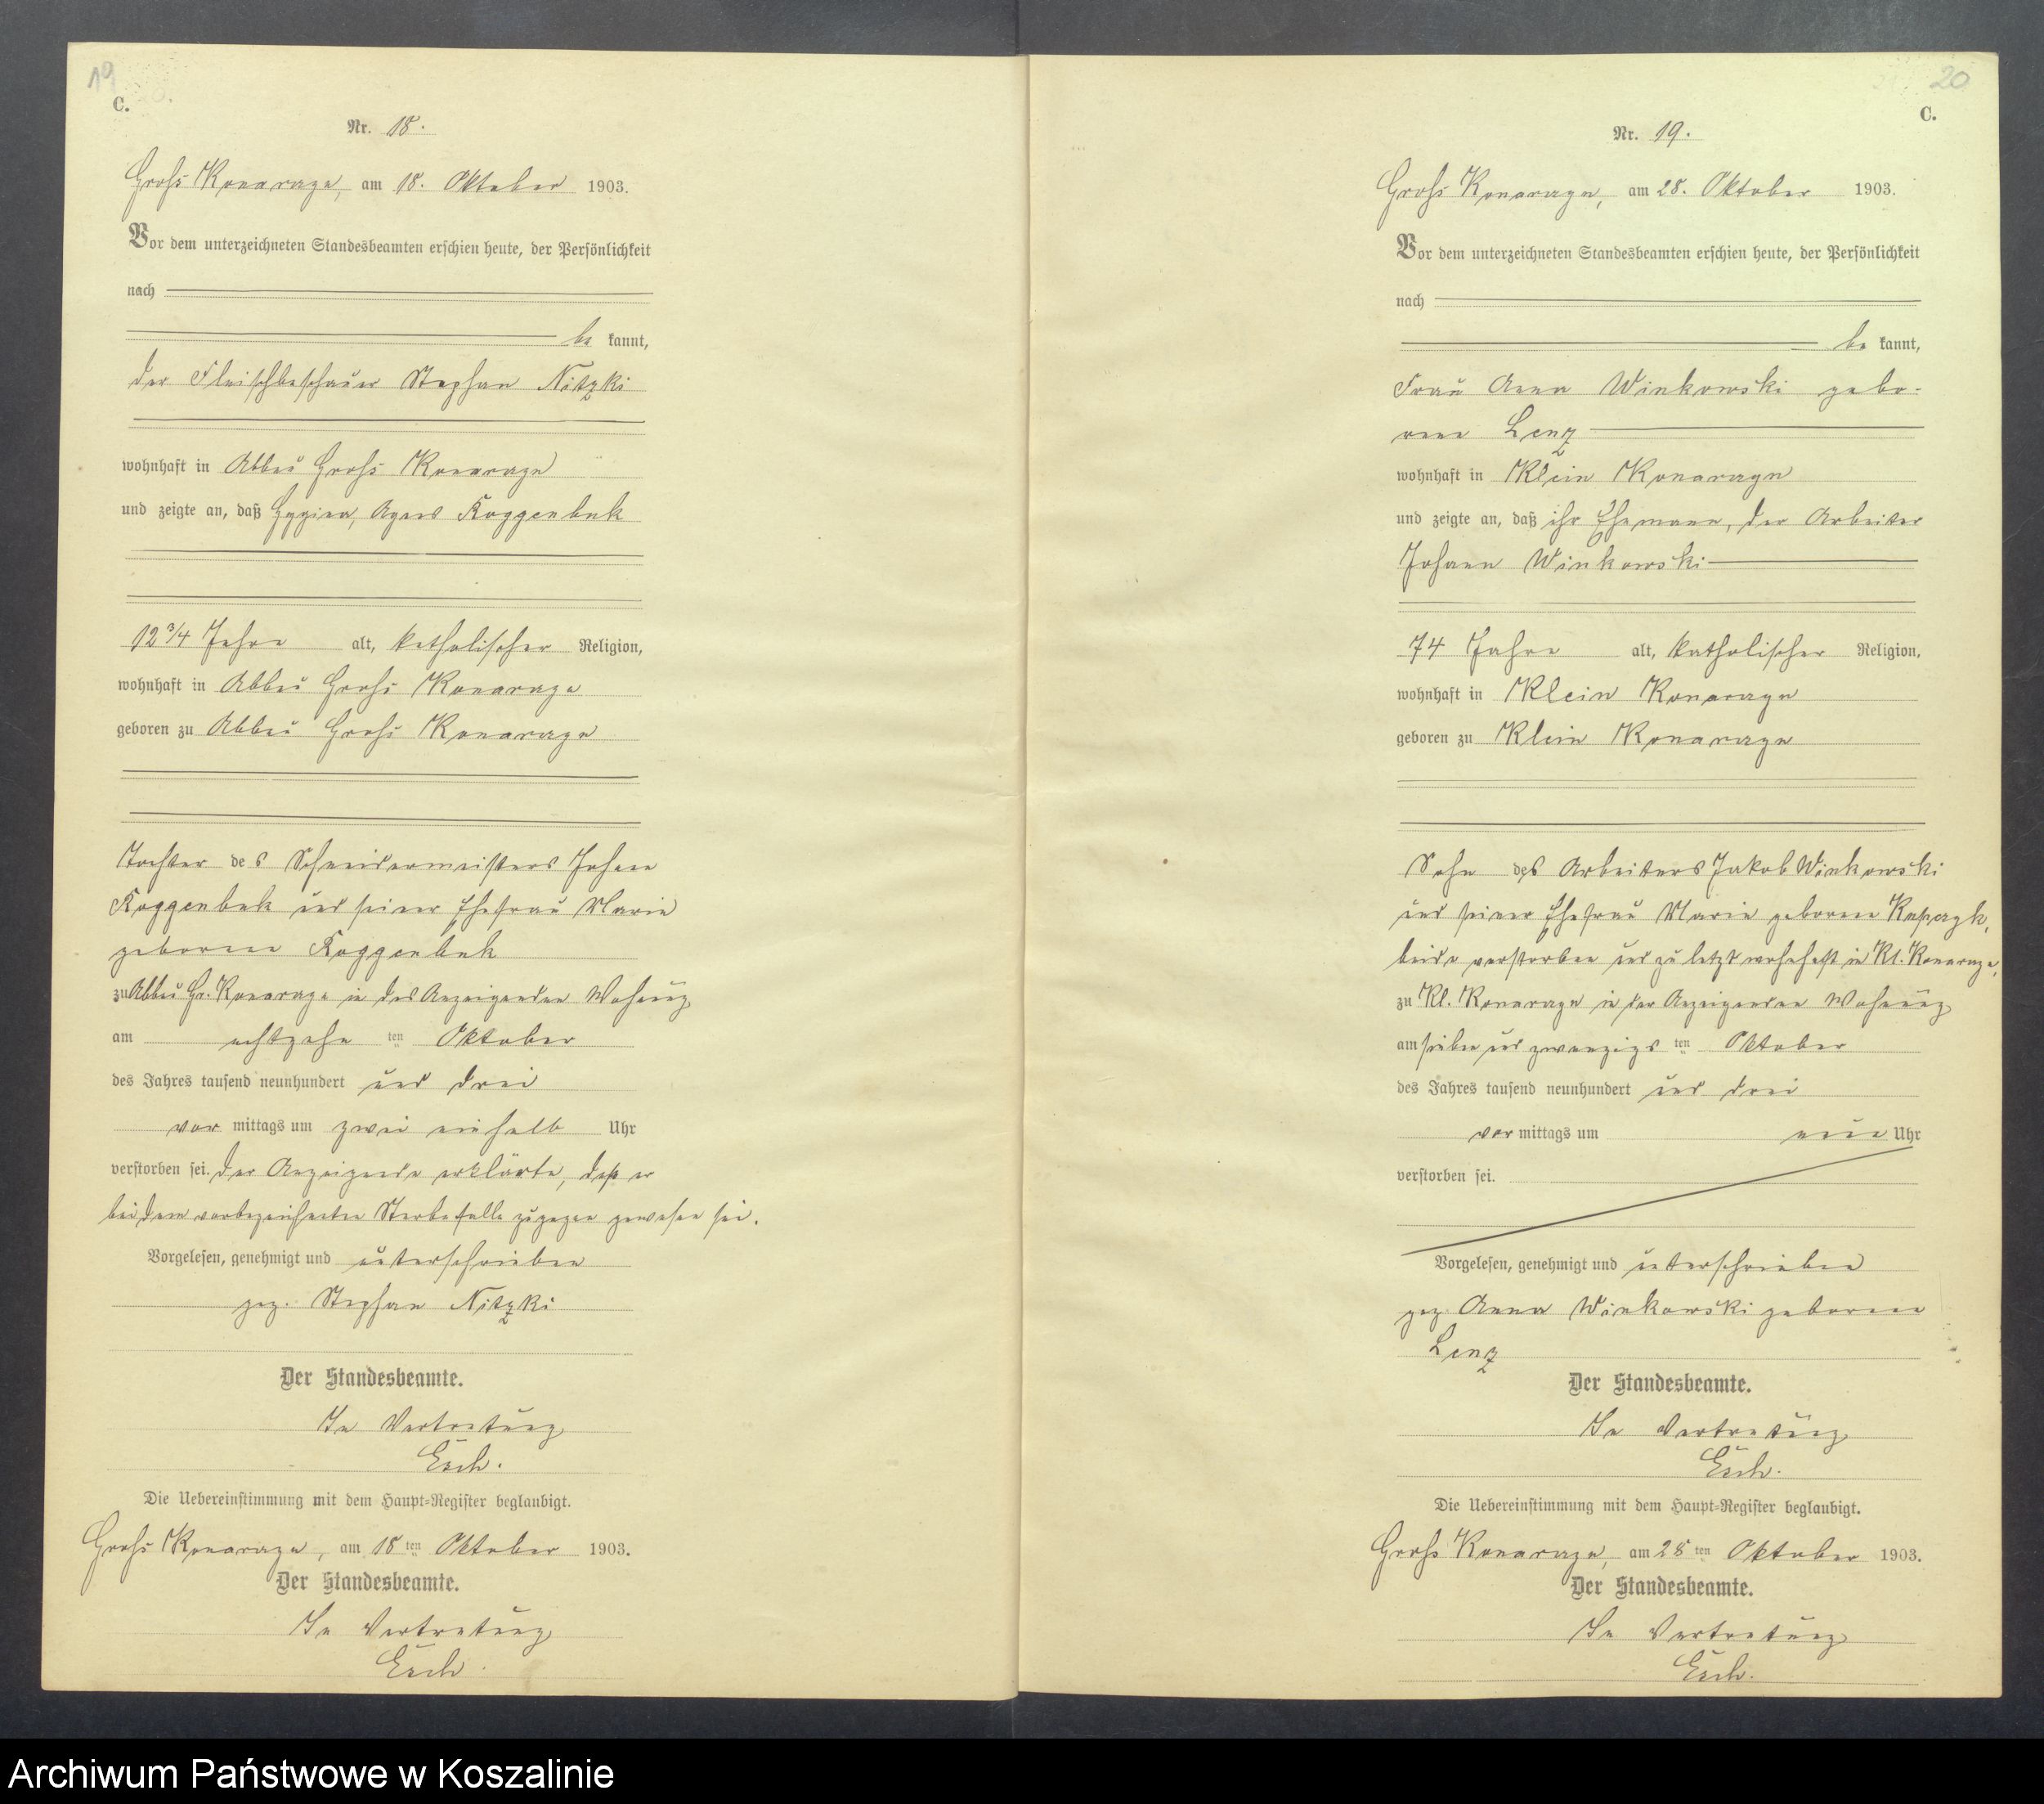 19
C.
Nr. 18.
Groß Konarzyn, am 18. Oktober 1903.
Vor dem unterzeichneten Standesbeamten erschien heute, der Persönlichkeit
nach
be kannt,
der Fleischbeschauer Stephan Nitzki
wohnhaft in Abbau Groß Konarzyn
und zeigte an, daß Agnes Roggenbuk
12 3/4 Jahre alt, katholischer Religion,
wohnhaft in Abbau Groß Konarzyn
geboren zu Abbau Groß Konarzyn
Tochter des Schneidermeisters Johann
Roggenbuk und seiner Ehefrau Marie
geborene Roggenbuk
zu Abbau Gr. Konarzyn in des Anzeigenden Wohnung
am achtzehn ten Oktober
des Jahres tausend neunhundert und drei
vor mittags um zwei einhalb Uhr
verstorben sei. Der Anzeigende erklärte, daß er
bei dem vorbezeichneten Sterbefalle zugegen gewesen sei.
Vorgelesen, genehmigt und unterschrieben
gez. Stephan Nitzki
Der Standesbeamte.
In Vertretung
Die Uebereinstimmung mit dem Haupt-Register beglaubigt.
Groß Konarzyn, am 18 ten Oktober 1903.
Der Standesbeamte.
In Vertretung
20
C.
Nr. 19.
Groß Konarzyn, am 28. Oktober 1903.
Vor dem unterzeichneten Standesbeamten erschien heute, der Persönlichkeit
nach
be kannt,
Frau Anna Winkowski gebo-
rene Lenz
wohnhaft in Klein Konarzyn
und zeigte an, daß ihr Ehemann, der Arbeiter
Johann Winkowski
74 Jahre alt, katholischer Religion,
wohnhaft in Klein Konarzyn
geboren zu Klein Konarzyn
Sohn des Arbeiters Jakob Winkowski
und seiner Ehefrau Marie geborene
beide verstorben und zuletzt wohnhaft in Kl. Konarzyn,
zu Kl. Konarzyn in der Anzeigenden Wohnung
am sieben und zwanzigs ten Oktober
des Jahres tausend neunhundert und drei
vor mittags um neun Uhr
verstorben sei.
Vorgelesen, genehmigt und unterschrieben
gez. Anna Winkowski geborene
Lenz
Der Standesbeamte.
In Vertretung
Die Uebereinstimmung mit dem Haupt-Register beglaubigt.
Groß Konarzyn, am 28 ten Oktober 1903.
Der Standesbeamte.
In Vertretung
Archiwum Państwowe w Koszalinie